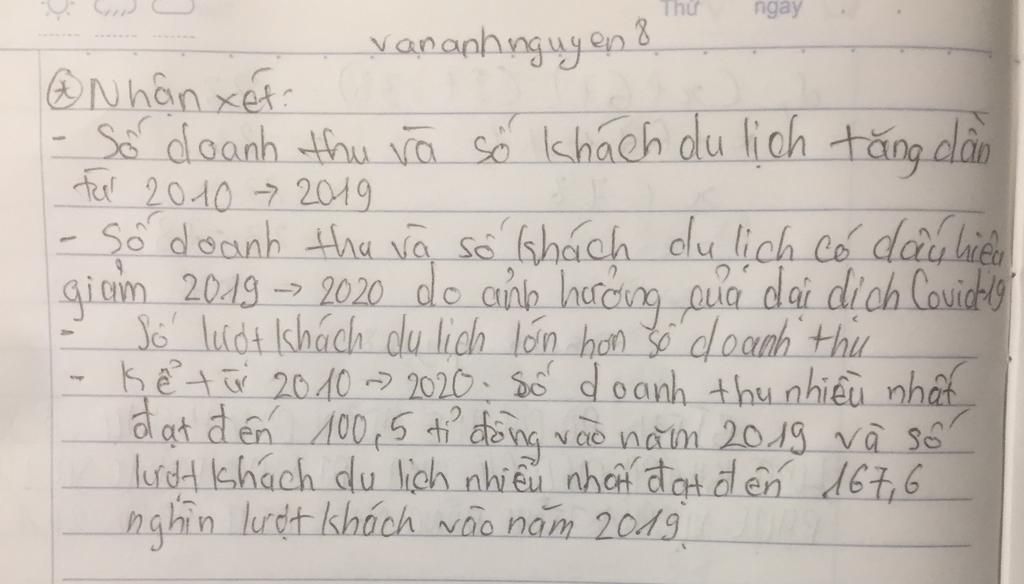 Thứ ngày
vananhnguyen8
* Nhận xét:
- Số doanh thu và số khách du lịch tăng dần
từ 2010 → 2019
- Số doanh thu và số khách du lịch có dấu hiệu
giảm 2019 → 2020 do ảnh hưởng của đại dịch Covid-19
- Số lượt khách du lịch lớn hơn số doanh thu
- Kể từ 2010 → 2020. số doanh thu nhiều nhất
đạt đến 100,5 tỉ đồng vào năm 2019 và số
lượt khách du lịch nhiều nhất đạt đến 167,6
nghìn lượt khách vào năm 2019.